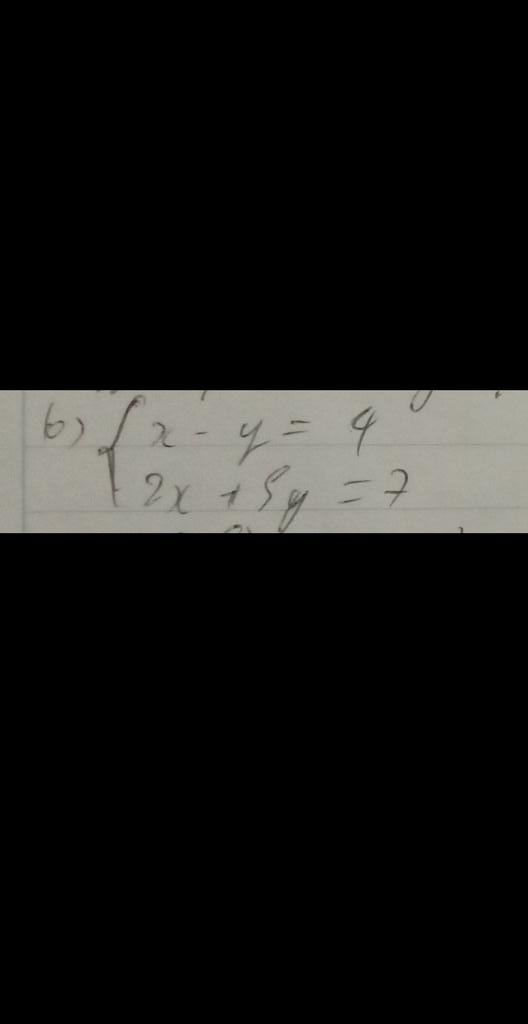 b) { x - y = 4
2x + 5y = 7